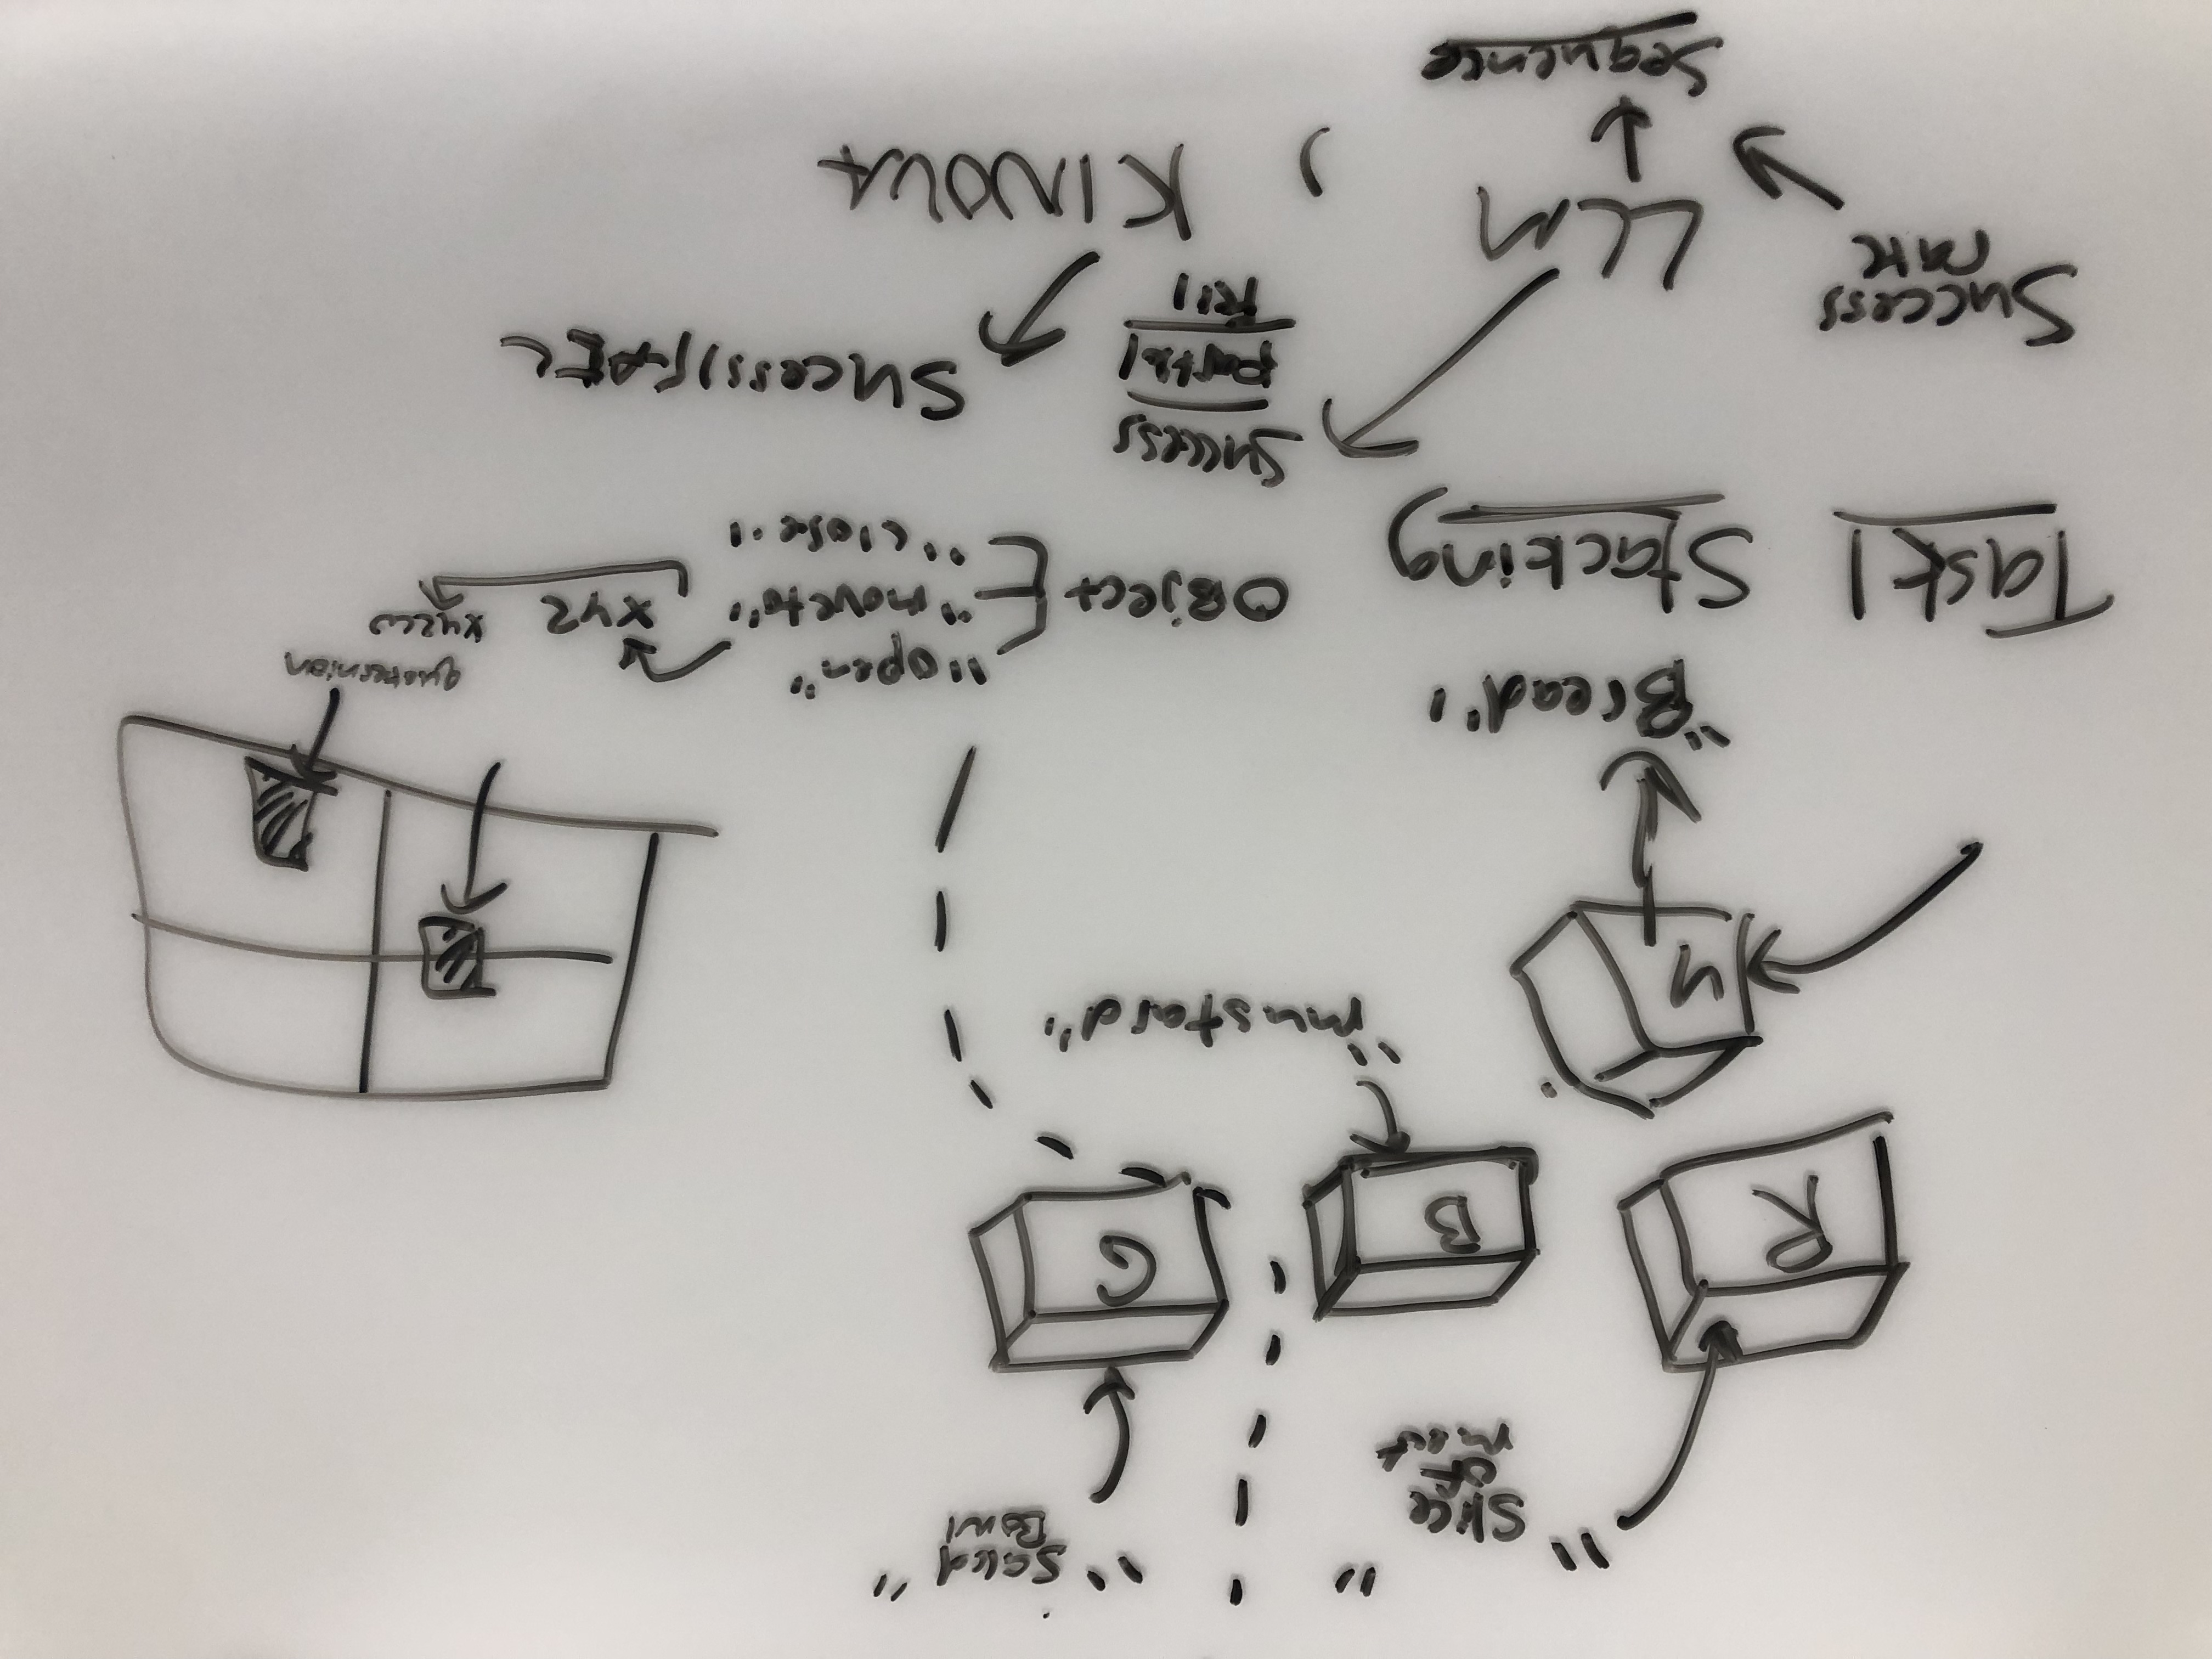 "Slice
of
meat"
"Salad
Bowl"
R
B
G
Y
"mustard"
"Bread"
Task 1 Stacking
Object
"open"
"move to"
"close"
XYZ
quaternion
XYZW
Success
Partial
Fail
Sucess/FAIL
Success
rate
LLM , KINOVA
Sequence